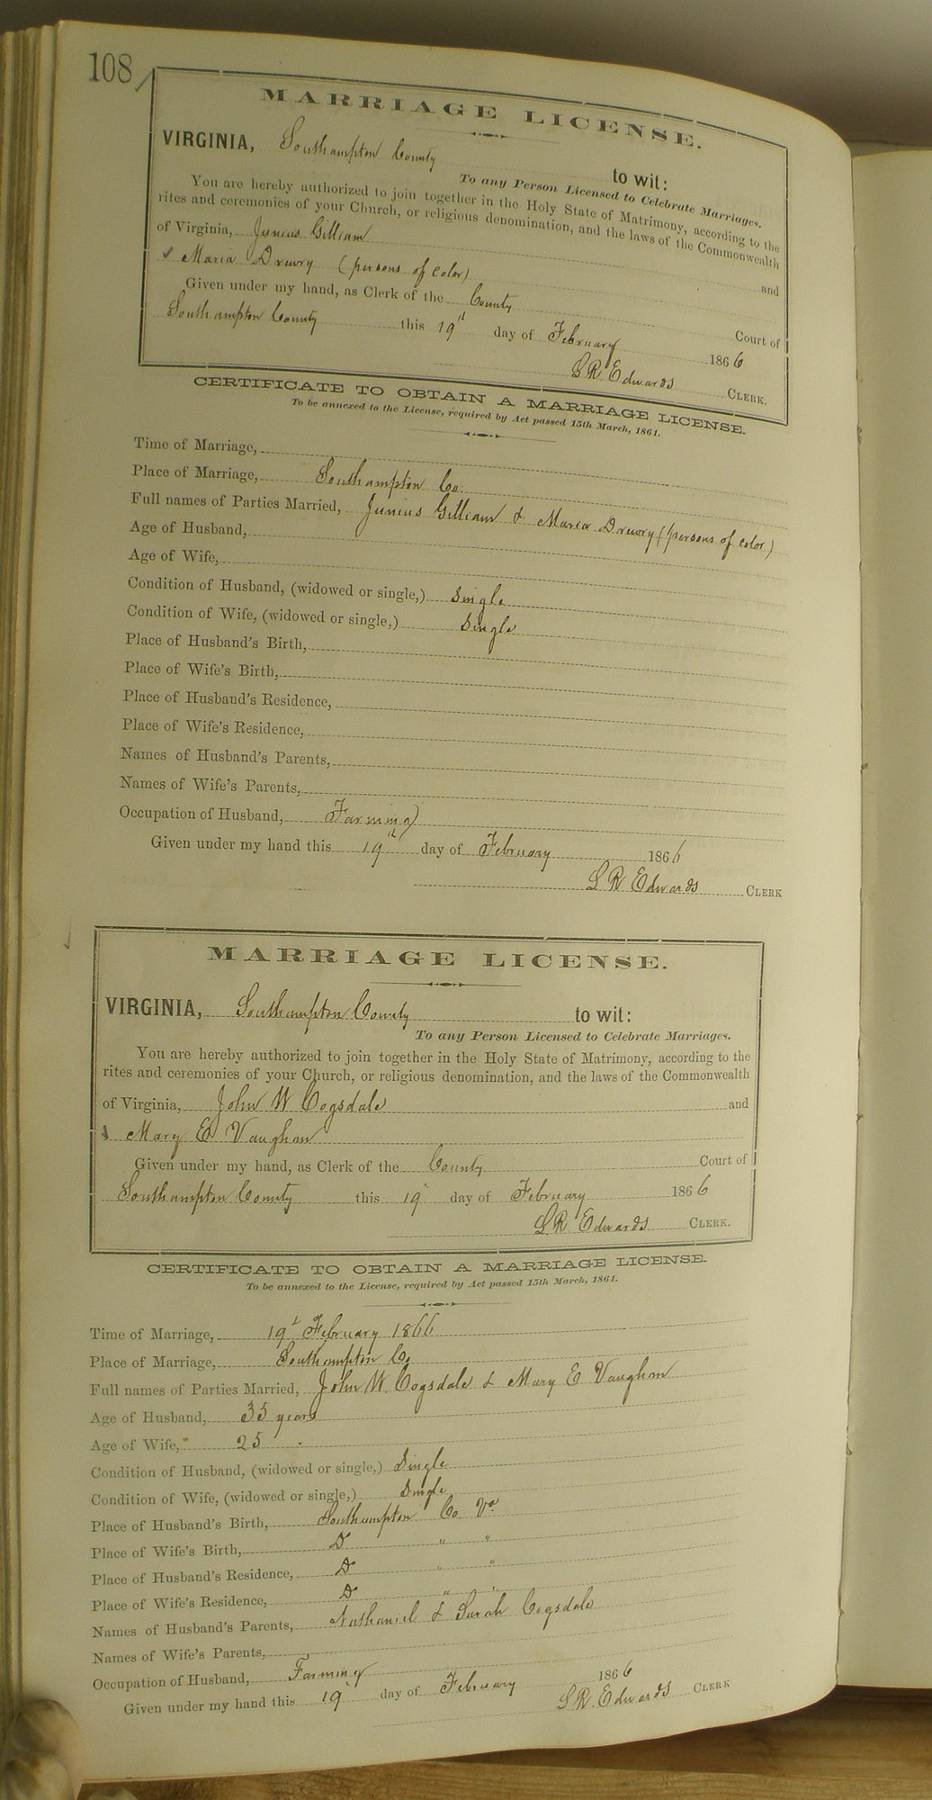 108
MARRIAGE LICENSE.
VIRGINIA, Southampton County to wit:
To any Person Licensed to Celebrate Marriages.
You are hereby authorized to join together in the Holy State of Matrimony, according to the
rites and ceremonies of your Church, or religious denomination, and the laws of the Commonwealth
of Virginia, Junius Gilliam and
& Maria Drewry (persons of color)
Given under my hand, as Clerk of the County Court of
Southampton County this 19th day of February 1866
L R Edwards CLERK.
CERTIFICATE TO OBTAIN A MARRIAGE LICENSE.
To be annexed to the License, required by Act passed 15th March, 1861.
Time of Marriage,
Place of Marriage, Southampton Co.
Full names of Parties Married, Junius Gilliam & Maria Drewry (persons of color)
Age of Husband,
Age of Wife,
Condition of Husband, (widowed or single,) Single
Condition of Wife, (widowed or single,) Single
Place of Husband's Birth,
Place of Wife's Birth,
Place of Husband's Residence,
Place of Wife's Residence,
Names of Husband's Parents,
Names of Wife's Parents,
Occupation of Husband, Farming
Given under my hand this 19th day of February 1866
L R Edwards CLERK
MARRIAGE LICENSE.
VIRGINIA, Southampton County to wit:
To any Person Licensed to Celebrate Marriages.
You are hereby authorized to join together in the Holy State of Matrimony, according to the
rites and ceremonies of your Church, or religious denomination, and the laws of the Commonwealth
of Virginia, John W Cogsdale and
& Mary E Vaughan
Given under my hand, as Clerk of the County Court of
Southampton County this 19 day of February 1866
L R Edwards CLERK.
CERTIFICATE TO OBTAIN A MARRIAGE LICENSE.
To be annexed to the License, required by Act passed 15th March, 1861.
Time of Marriage, 19th February 1866
Place of Marriage, Southampton Co
Full names of Parties Married, John W. Cogsdale & Mary E Vaughan
Age of Husband, 35 years
Age of Wife, 25 "
Condition of Husband, (widowed or single,) Single
Condition of Wife, (widowed or single,) Single
Place of Husband's Birth, Southampton Co Va
Place of Wife's Birth, Do " "
Place of Husband's Residence, Do " "
Place of Wife's Residence, Do " "
Names of Husband's Parents, Nathaniel & Sarah Cogsdale
Names of Wife's Parents,
Occupation of Husband, Farming
Given under my hand this 19 day of February 1866
L R. Edwards CLERK